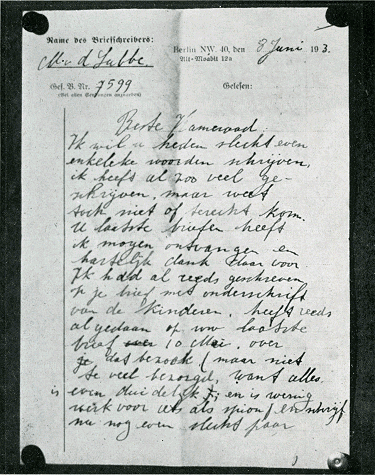 Name des Briefschreibers:
M. v. d. Lubbe.
Berlin NW. 40, den 8 Juni 193.
Alt-Moabit 12a
Gef. B. Nr. 7599
(Bei allen Sendungen anzugeben)
Gelesen:
Beste Kameraad.
Ik wil u heden slecht even
enkeleke woorden schrijven,
ik heeft al zoo veel ge-
schrijven, maar weet
toch niet of terecht kom.
U laatste briefen heeft
ik mogen ontvangen en
hartelijk dank daar voor
Ik had al reeds geschreven
je brief met onderschrift
van de Kinderen, heeft reeds
al gedaan op uw laatste
brief 10 Mei, over
je das bezoek (maar niet
te veel bezorgd, want alles
is even duidelijk; en is weinig
werk voor iets als spion)
nu nog even slecht paar